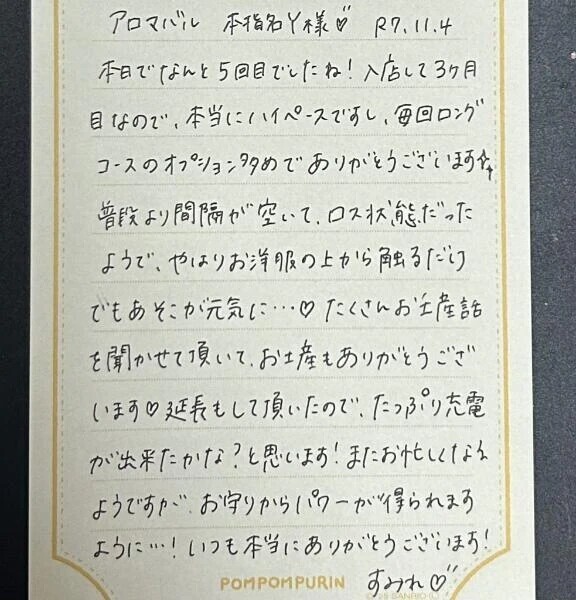 アロマバル 本指名Y様♡ R7.11.4
本日でなんと5回目でしたね!入店して3ヶ月
目なので、本当にハイペースですし、毎回ロング
コースのオプション多めでありがとうございます
普段より間隔が空いて、ロス状態だった
ようで、やはりお洋服の上から触るだけ
でもあそこが元気に…♡たくさんお土産話
を聞かせて頂いて、お土産もありがとうござ
います♡延長もして頂いたので、たっぷり充電
が出来たかな?と思います!またお忙しくなる
ようですが、お守りからパワーが得られます
ように…!いつも本当にありがとうございます!
POMPOMPURIN すみれ♡
SANRIO